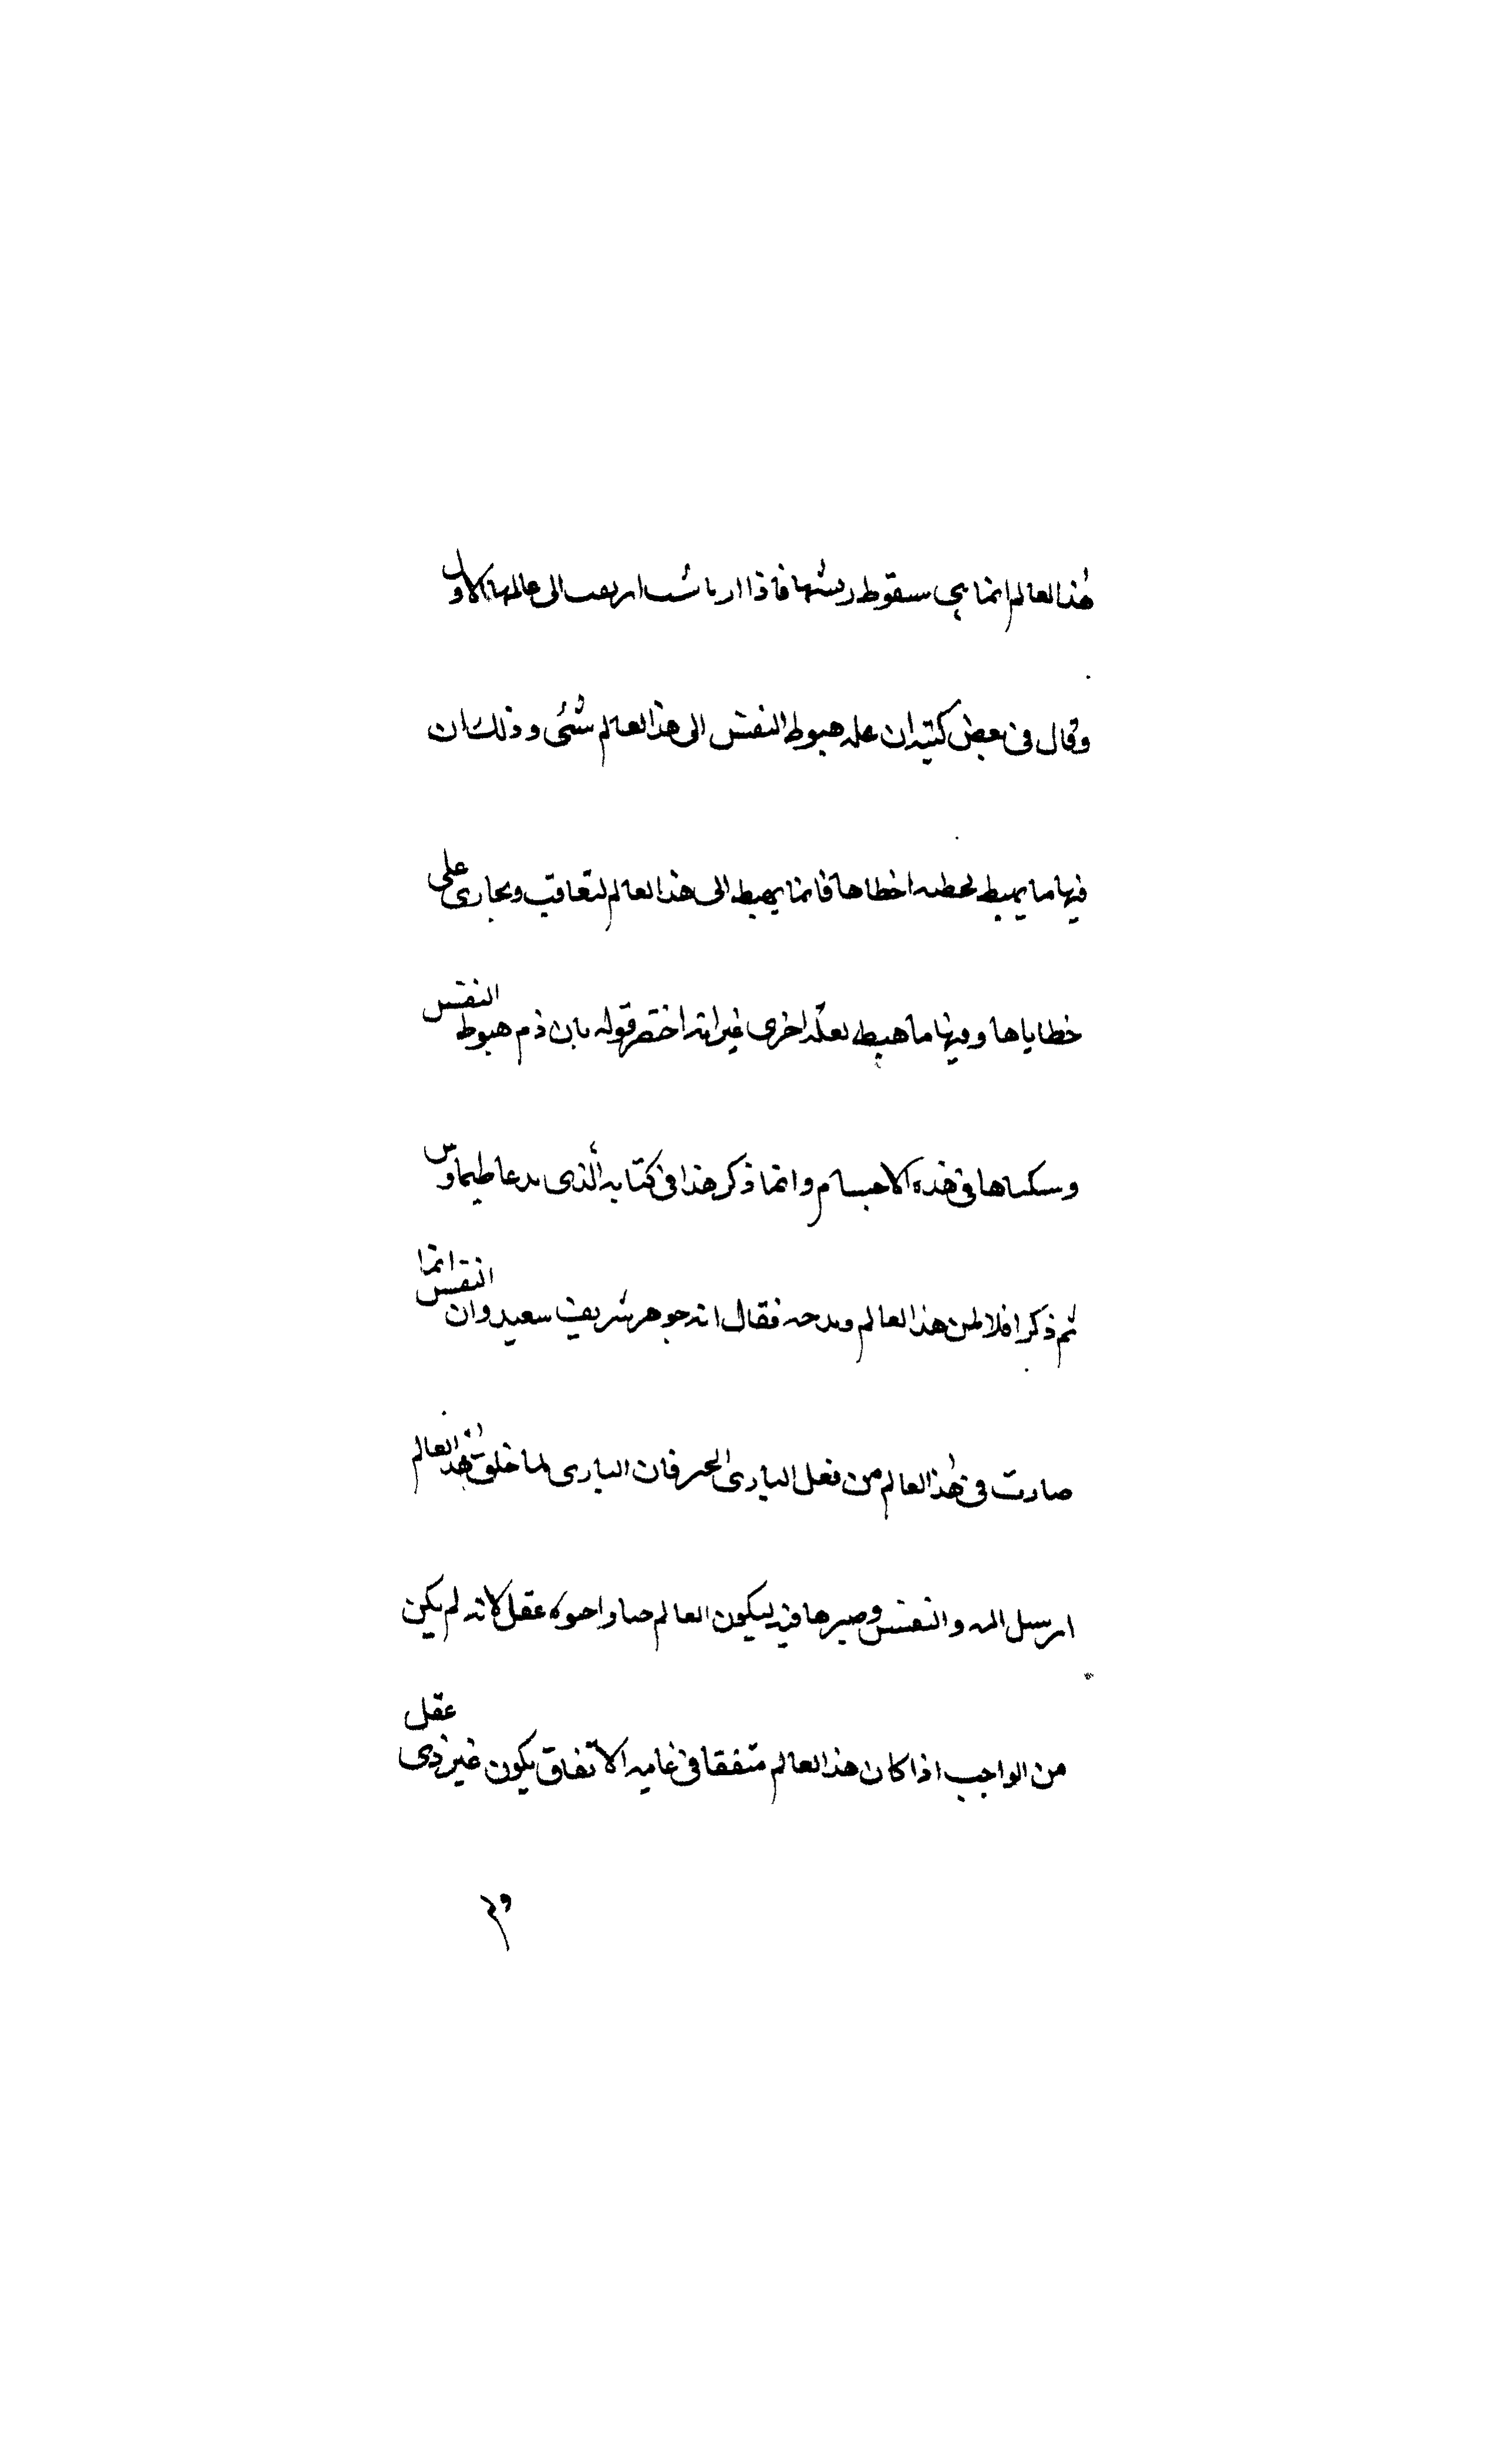 هذا العالم انما هي سقوط ريشها فاذا ارتاشت ارتفعت الى عالمها الاول
وقال في بعض كتبه ان علة هبوط النفس الى هذا العالم شئى وذلك ان
فيها ما يهبط لخطية اخطاها فانما يهبط الى هذا العالم لتعاقب وتجازى على
خطاياها وفيها ما هبط بعلة اخرى غير انه اختصر قوله بان ذم هبوط النفس
وسكناها في هذه الاجسام وانما ذكر هذا في كتابه الذى يدعا طيماوس
ثم ذكر افلاطن هذا العالم ومدحه فقال انه جوهر شريف سعيد وان النفس انما
صارت في هذا العالم من فعل البارى الخير فان البارى لما خلق هذا العالم
ارسل اليه والنفس وصيرها فيه ليكون العالم عقل لانه لم يكن
من الواجب اذا كان هذا العالم متفقا في غاية الاتفاق يكون غير ذى عقل